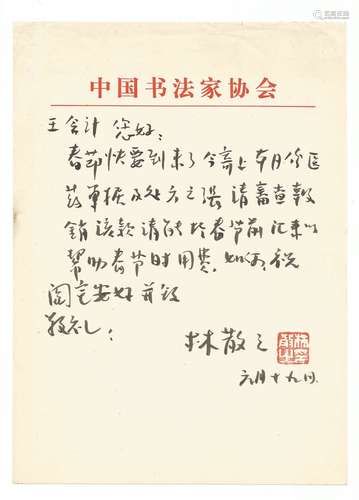 中国书法家协会
王会计 您好:
春节快要到来了今寄上本月份医
药单据及处方之张请审查报
销该款请能于春节前汇来以
帮助春节时用费.如何祝
阖宅安好并致
敬礼:
林散之
元月十九日.